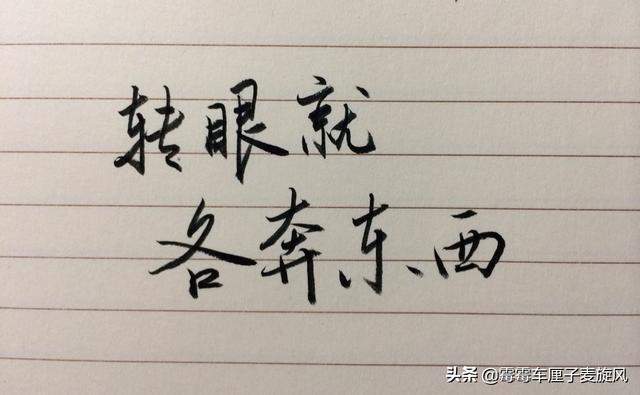 转眼就
各奔东西
头条 @霉霉车厘子麦旋风